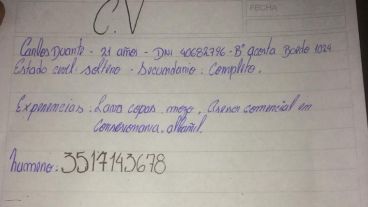 FECHA
C.V
Carlos Duarte - 21 años - DNI 40682796 - Bº acosta Bordo 1024
Estado civil soltero - Secundario: Completo.
Experiencias: Lava copas, mozo, Asesor comercial en
Consecionaria, albañil.
numero: 3517143678